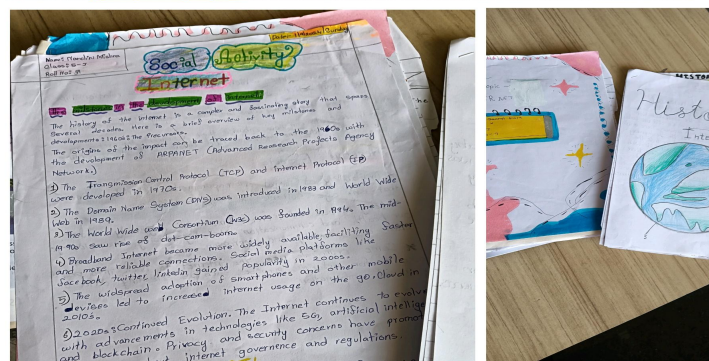 Name: Nandini Mishra
Class: 8-J
Roll No:
Date:
Sunday
Social Activity
Internet
the of the development of internet
The history of the internet is a complex and fascinating story that spans
several decades. Here is a brief overview of key milestones and
developments: 1960s: The Precursors.
The origins of the impact can be traced back to the 1960s with
the development of ARPANET (Advanced Research Projects Agency
Network.)
1) The Transmission Control Protocol (TCP) and Internet Protocol (IP)
were developed in 1970s.
2) The Domain Name System (DNS) was introduced in 1983 and World Wide
Web in 1989.
3) The World Wide Web Consortium (W3C) was founded in 1994. The mid-
1990s saw rise of dot-com-boom.
4) Broadband Internet became more widely available, faciliting faster
and more reliable connections. Social media platforms like
facebook, twitter linkedin gained popularity in 2000s.
5) The widespread adoption of smartphones and other mobile
devises led to increased internet usage on the go, Cloud in
2010s.
6) 2020s: Continued Evolution. The Internet continues to evolve
with advancements in technologies like 5G, artificial intellige
and blockchain. Privacy and security concerns have promo
internet governence and regulations.
HISTO
Histo
Inte